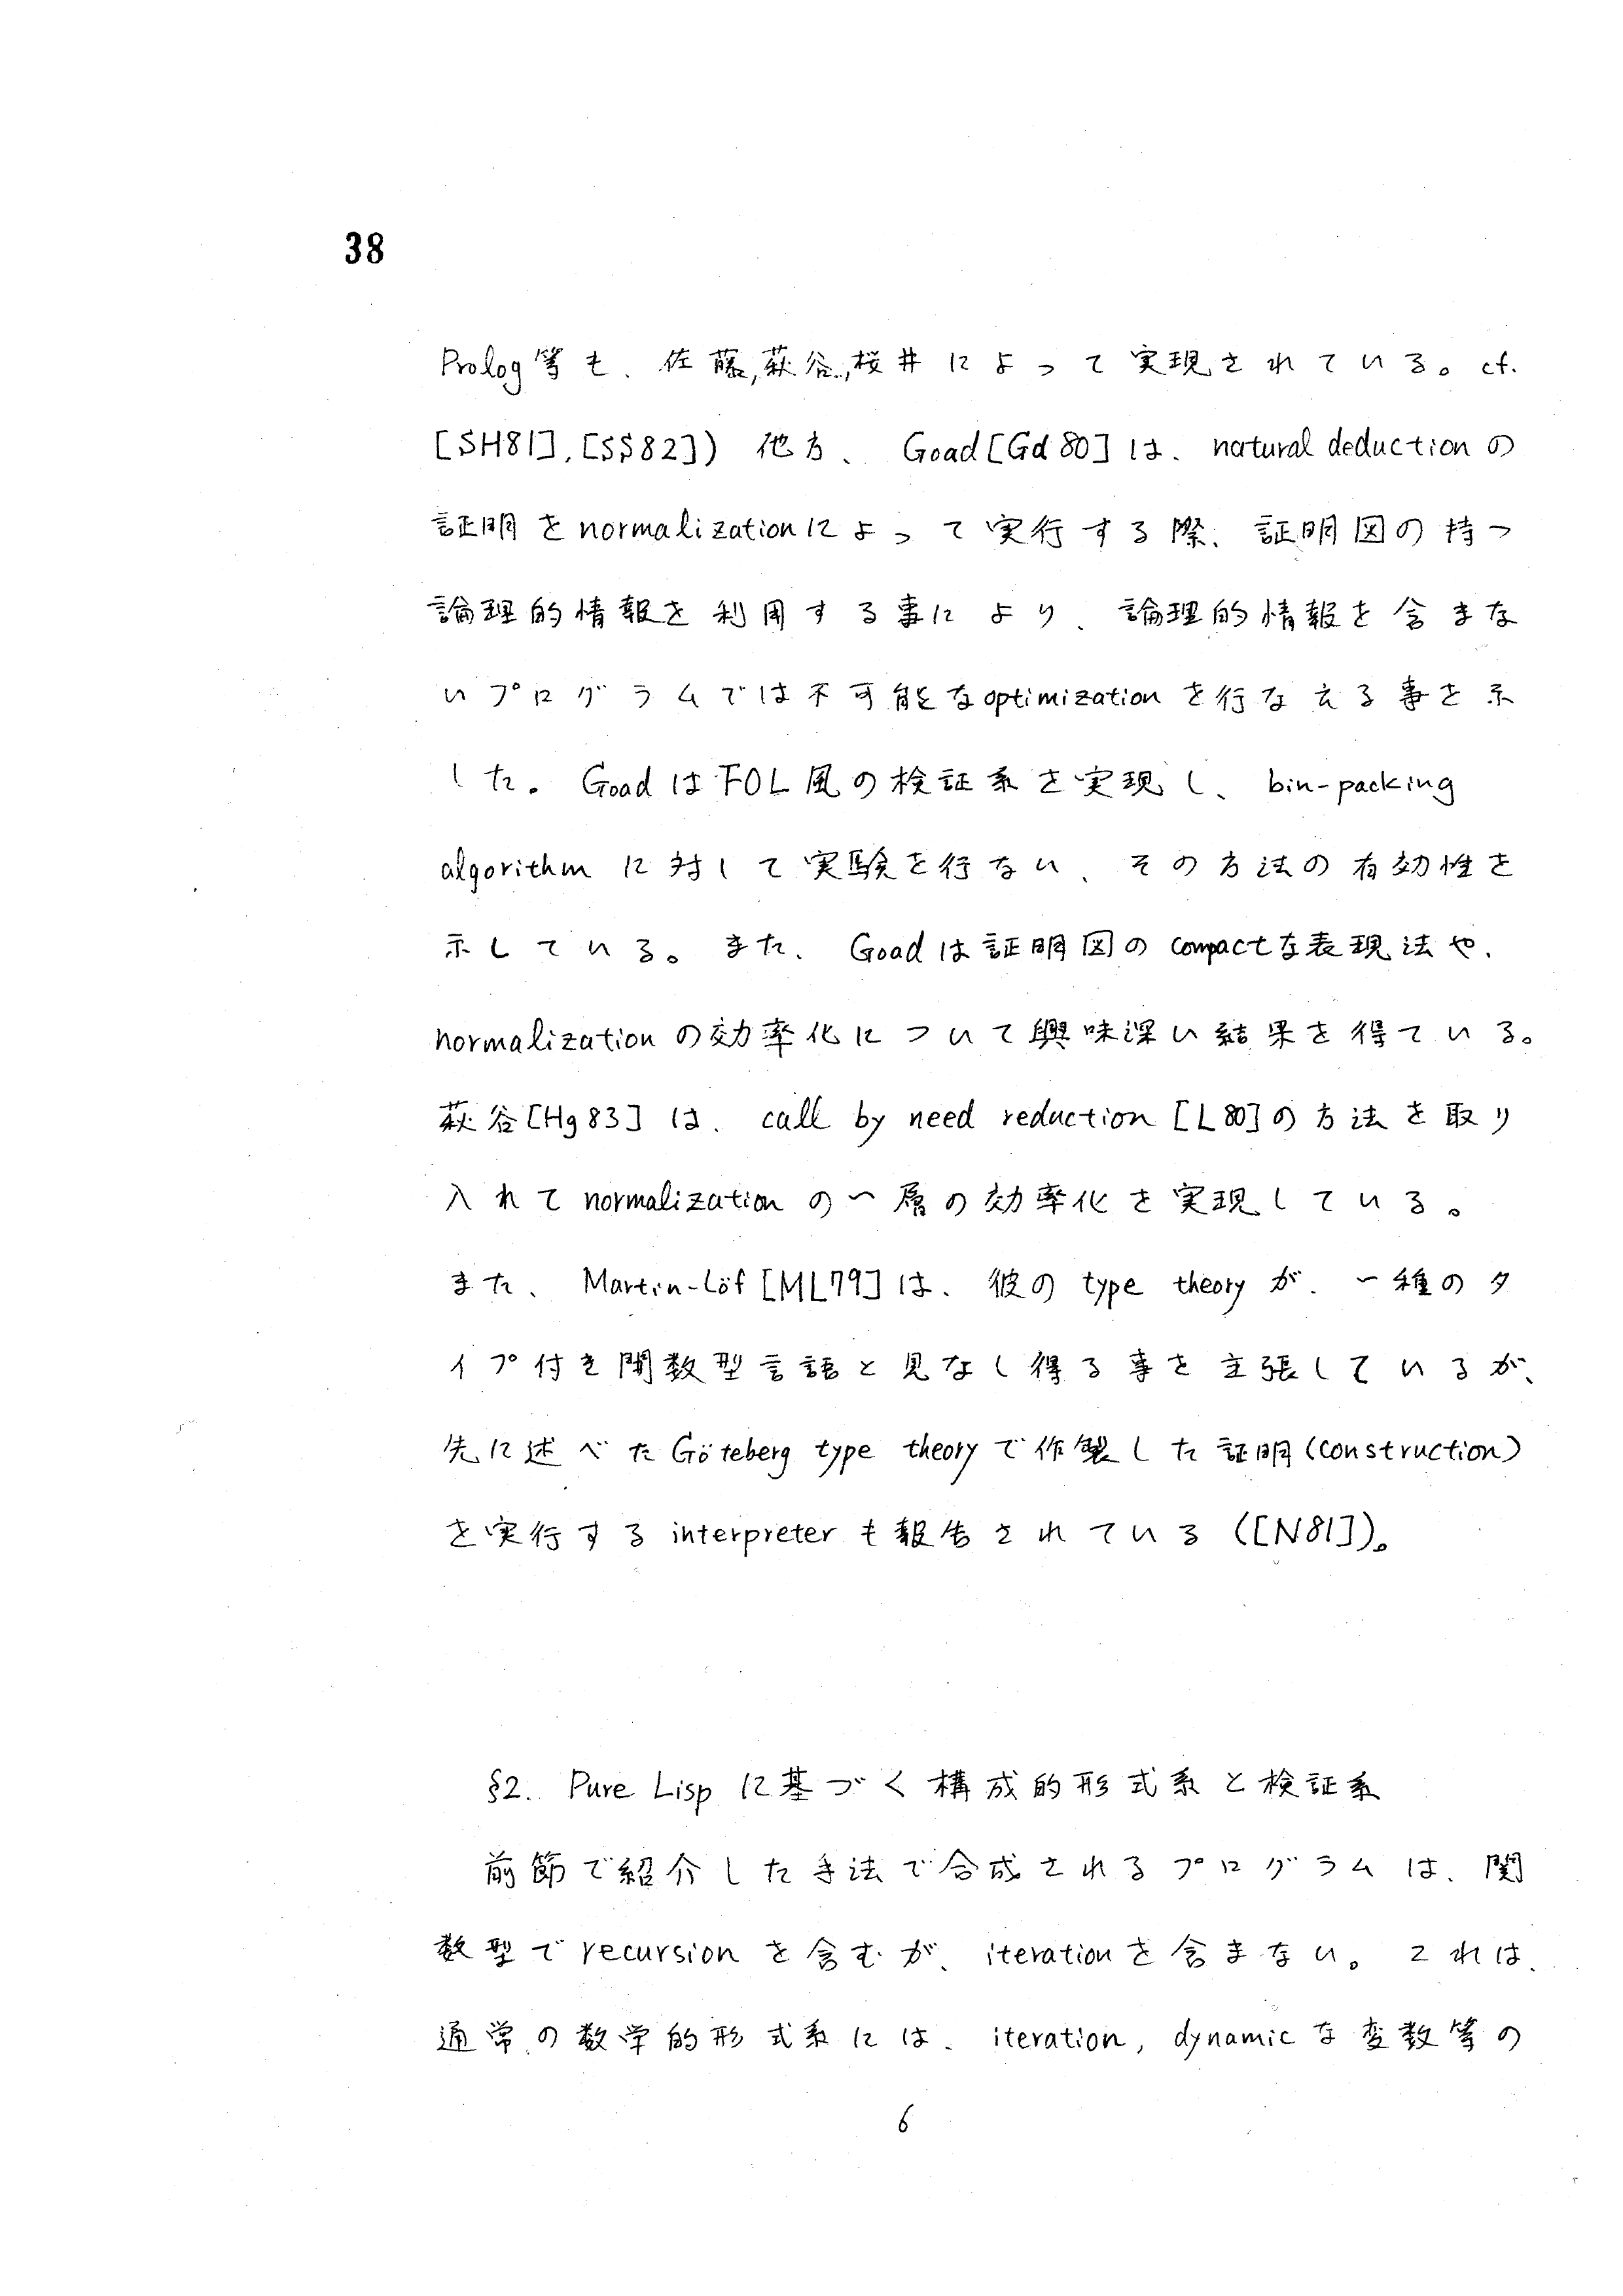 38
Prolog等も、佐藤,萩谷,桜井によって実現されている。cf.
[SH81],[SS82]) 他方、Goad[Gd80]は、natural deductionの
証明をnormalizationによって実行する際、証明図の持つ
論理的情報を利用する事により、論理的情報を含まな
いプログラムでは不可能なoptimizationを行なえる事を示
した。GoadはFOL風の検証系を実現し、bin-packing
algorithmに対して実験を行ない、その方法の有効性を
示している。また、Goadは証明図のcompactな表現法や、
normalizationの効率化について興味深い結果を得ている。
萩谷[Hg83]は、call by need reduction [L80]の方法を取り
入れてnormalizationの一層の効率化を実現している。
また、Martin-Löf[ML79]は、彼のtype theoryが、一種のタ
イプ付き関数型言語と見なし得る事を主張しているが、
先に述べたGöteberg type theoryで作製した証明(construction)
を実行するinterpreterも報告されている([N81])。
§2. Pure Lispに基づく構成的形式系と検証系
前節で紹介した手法で合成されるプログラムは、関
数型でrecursionを含むが、iterationを含まない。これは、
通常の数学的形式系には、iteration, dynamicな変数等の
6